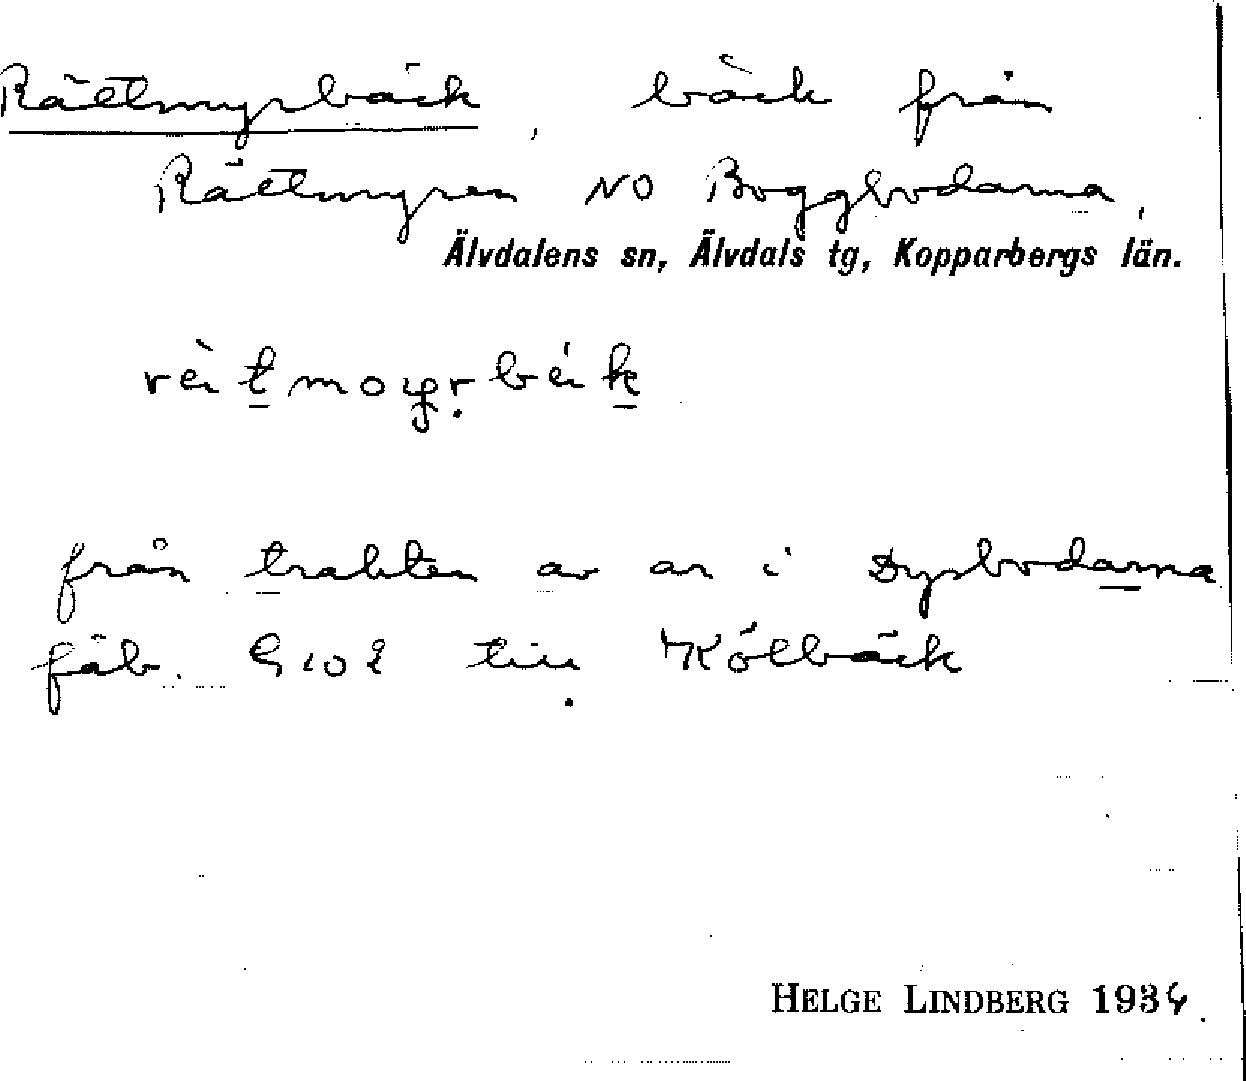 Rättmyrbäck, bäck från
Rättmyren NO Boggbodarna,
Älvdalens sn, Älvdals tg, Kopparbergs län.
från trakten av an i Dysbodarna
fäb. till Kölbäck
HELGE LINDBERG 1934.